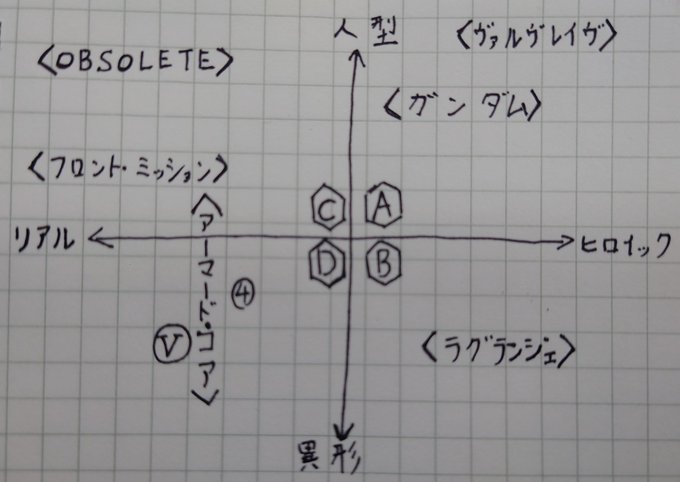 人型
〈ヴァルヴレイヴ〉
〈OBSOLETE〉
〈ガンダム〉
〈フロント・ミッション〉
C
A
リアル
ヒロイック
D
B
〈アーマード・コア〉
④
Ⓥ
〈ラグランジェ〉
異形